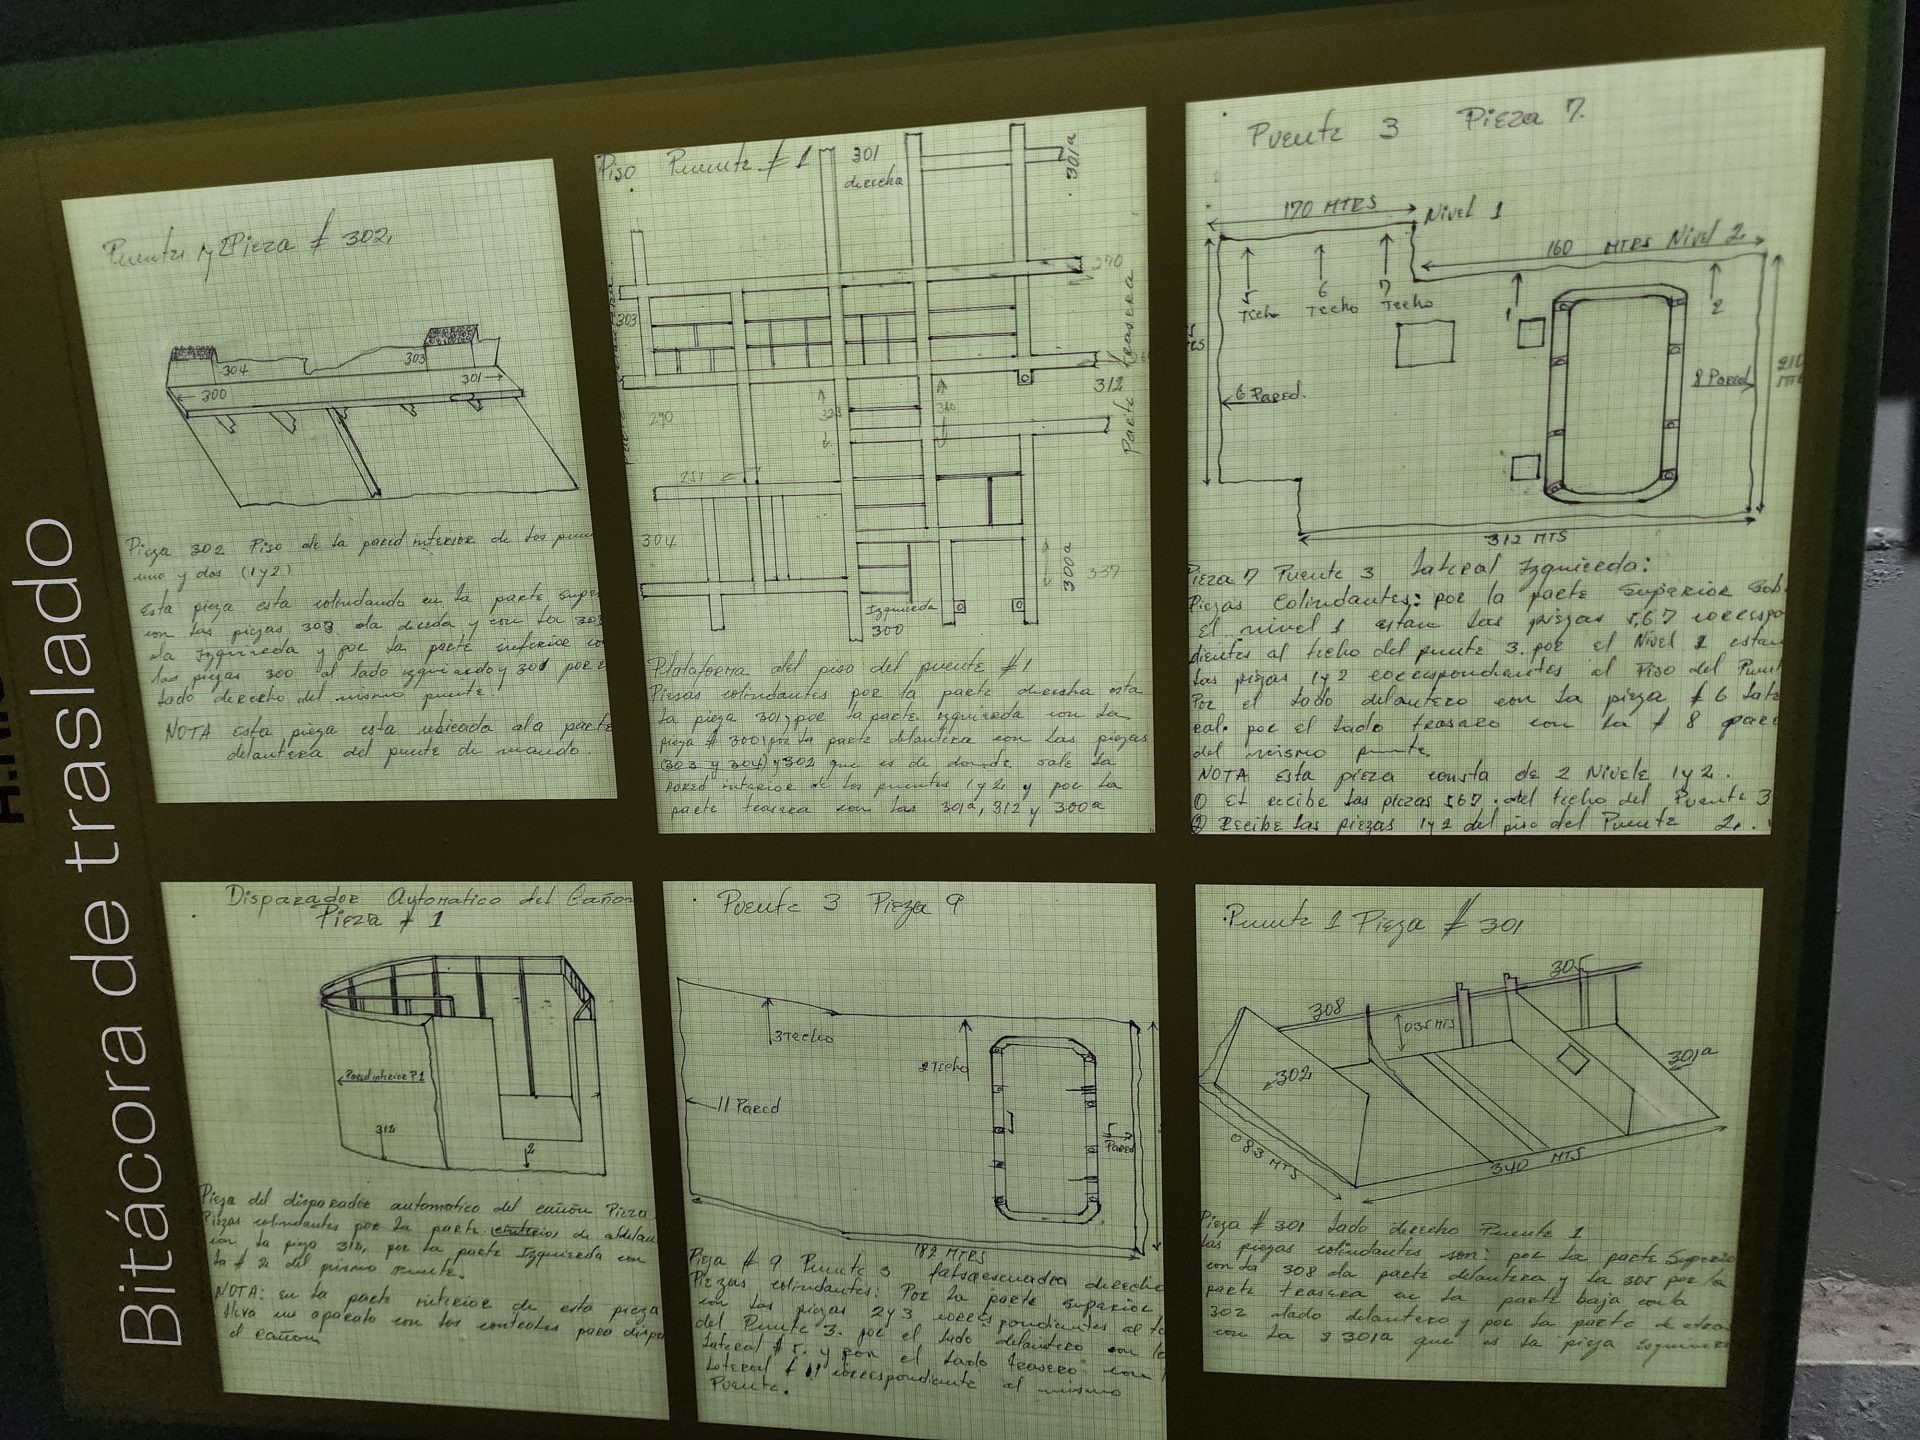 Bitácora de traslado
Puentes 1y2 Pieza # 302.
304
303
300
301
Pieza 302 Piso de la pared interior de los
uno y dos (1y2)
Esta pieza esta colindando en la parte
con las piezas 303 ala derecha y con la
ala Izquierda y por la parte inferior
las piezas 300 al lado izquierdo y 301 por
lado derecho del mismo puente.
NOTA Esta pieza esta ubicada ala parte
delantera del puente de mando.
Piso Puente # 1
301
derecha
301a
270
303
Parte trasera
312
290
323
340
251
304
300a
337
Izquierda
300
Plataforma del piso del puente #1
Piezas colindantes por la parte derecha esta
la pieza 301, por la parte izquierda con la
pieza # 300, por la parte delantera con las piezas
(303 y 304) y 302 que es de donde sale la
pared interior de los puentes 1y2, y por la
parte trasera con las 301a, 312 y 300a
Puente 3 Pieza 7.
170 MTRS
Nivel 1
160 MTRS Nivel 2
5
Techo
6
Techo
7
Techo
1
2
6 Pared.
8 Pared
210
312 MTS
Pieza 7 Puente 3 Lateral Izquierda:
Piezas Colindantes: por la parte Superior
El nivel 1 estan las piezas 5,6 7
dientes al techo del puente 3. por el Nivel 2 estan
las piezas 1y2 correspondientes al Piso del
Por el lado delantero con la pieza # 6
por el lado trasero con la # 8
del mismo puente.
NOTA Esta pieza consta de 2 Nivele 1y2.
① El recibe las piezas 567 del techo del Puente 3
② Recibe las piezas 1y2 del piso del Puente 2.
Disparador Automatico del Cañon
Pieza # 1
Pared interior P1
312
2
Pieza del disparador automatico del cañon Pieza
Piezas colindantes por la parte de
con la pieza 312, por la parte Izquierda con
la # 2 del mismo puente.
NOTA: en la parte interior de esta pieza
lleva un aparato con los controles para
el cañon
Puente 3 Pieza 9
3 Techo
2 Techo
11 Pared
5
Pared
182 MTRS
Pieza # 9 Puente 3 falsaescuadra derecho
Piezas colindantes: Por la parte superior
con las piezas 2y3 correspondientes al
del Puente 3. por el lado delantero con
Lateral # 5. y por el lado trasero con
Lateral # 11 correspondiente al mismo
Puente.
Puente 1 Pieza # 301
305
308
035 MTS
302
301a
083 MTS
340 MTS
Pieza # 301 lado derecho Puente 1
las piezas colindantes son: por la parte
con la 308 ala parte delantera y la 305 por la
parte trasera en la parte baja con la
302 alado delantero y por la parte de
con la 301a que es la pieza